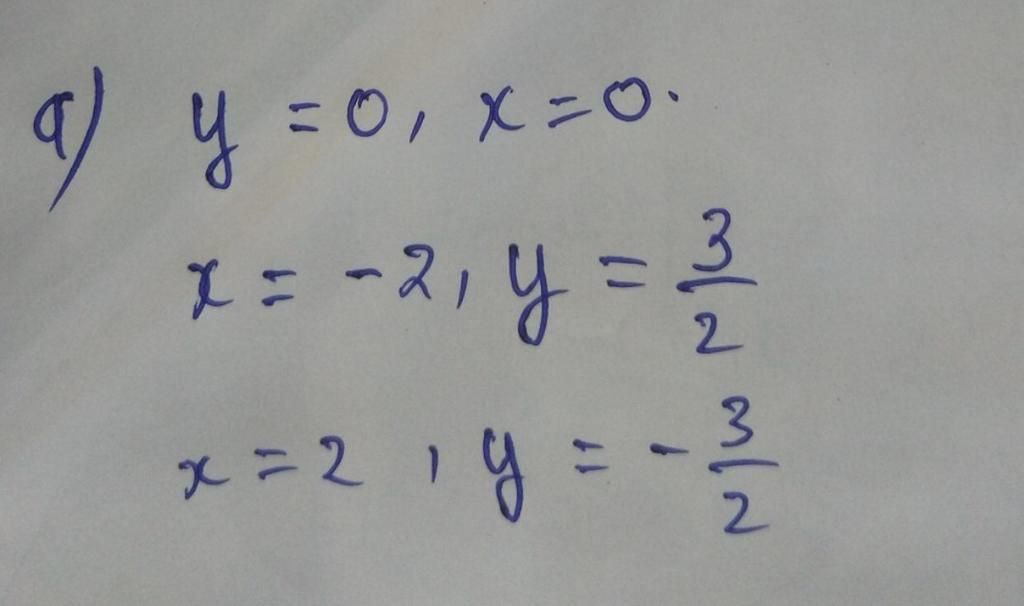 a) y = 0, x = 0.
x = -2, y = 3/2
x = 2, y = -3/2